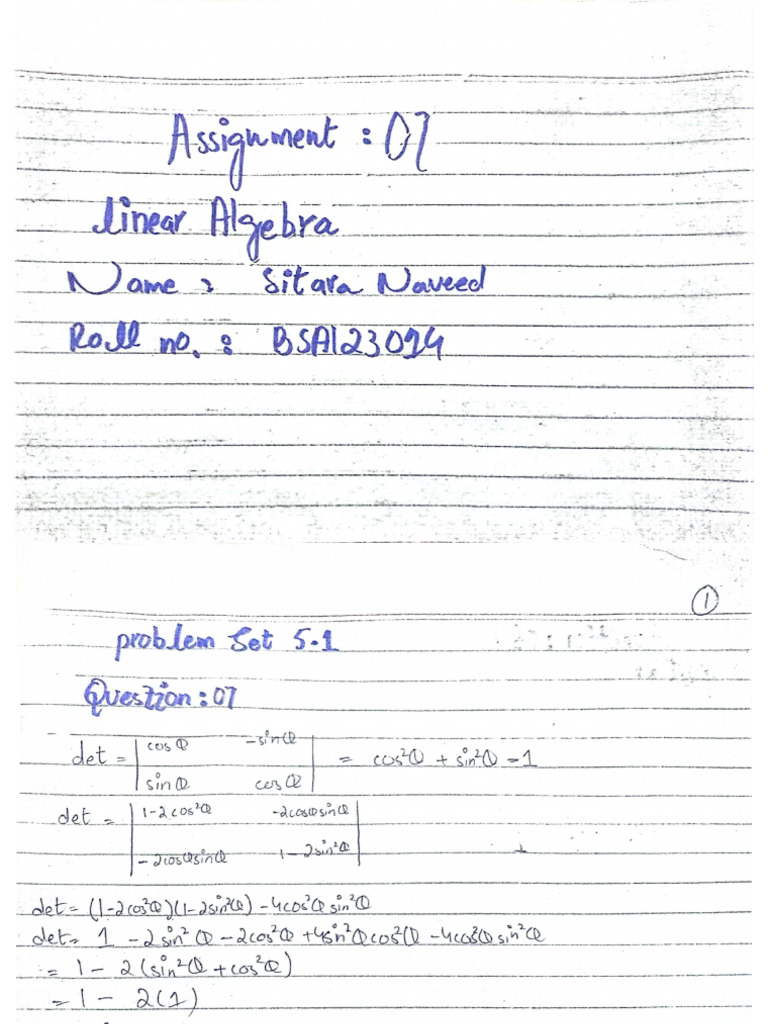 Assignment : 07
Linear Algebra
Name : Sitara Naveed
Roll no. : BSAI23014
1
problem Set 5.1
Question : 07
det = | cosθ -sinθ |
| sinθ cosθ | = cos²θ + sin²θ = 1
det = | 1-2cos²θ -2cosθsinθ |
| -2cosθsinθ 1-2sin²θ |
det = (1-2cos²θ)(1-2sin²θ) - 4cos²θ sin²θ
det = 1 - 2sin²θ - 2cos²θ + 4sin²θcos²θ - 4cos²θ sin²θ
= 1 - 2(sin²θ + cos²θ)
= 1 - 2(1)